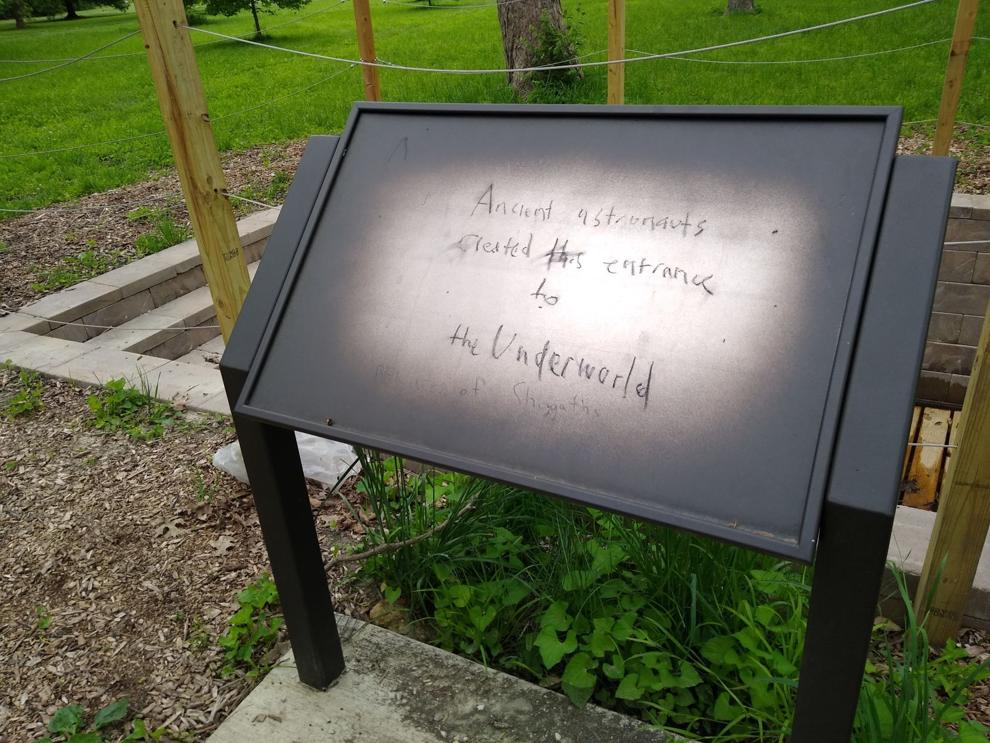 Ancient astronauts
created this entrance
to
the Underworld
of Shoggoths